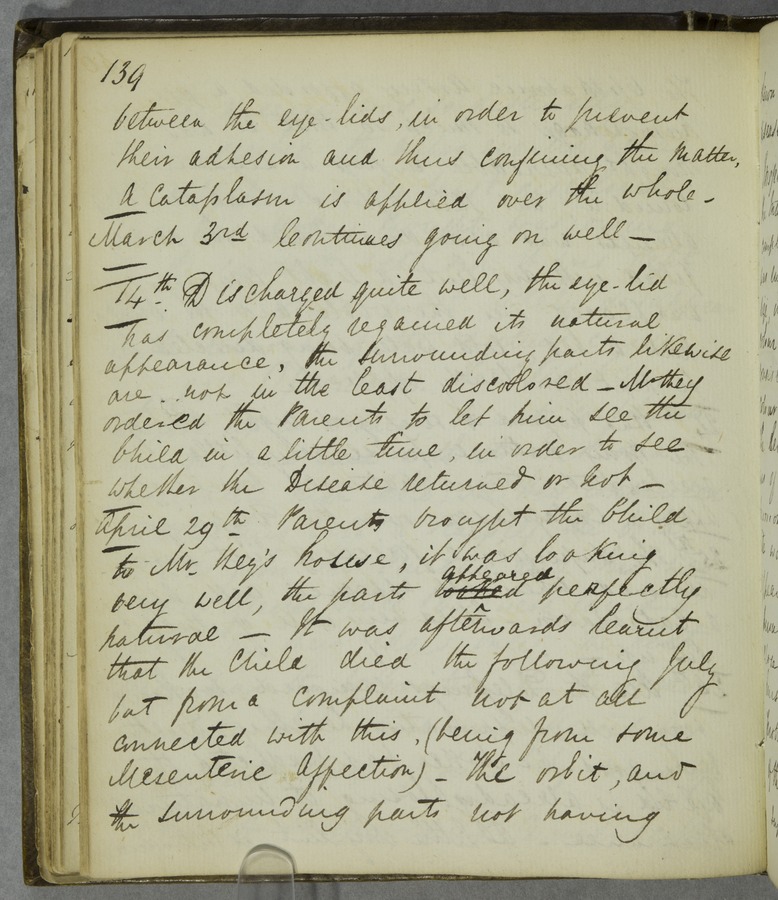 139
between the eye-lids, in order to prevent
their adhesion and thus confining the matter,
A Cataplasm is applied over the whole -
March 3rd Continues going on well -
14th Discharged quite well, the eye-lid
has completely regained its natural
appearance, the surrounding parts likewise
are not in the least discolored - Mr Hey
ordered the Parents to let him see the
Child in a little time, in order to see
whether the Disease returned or not -
April 29th Parents brought the Child
to Mr Hey's house, it was looking
appeared
very well, the parts looked perfectly
natural - It was afterwards learnt
that the Child died the following July
but from a complaint not at all
connected with this, (being from some
Mesenteric Affection) - The orbit, and
the surrounding parts not having